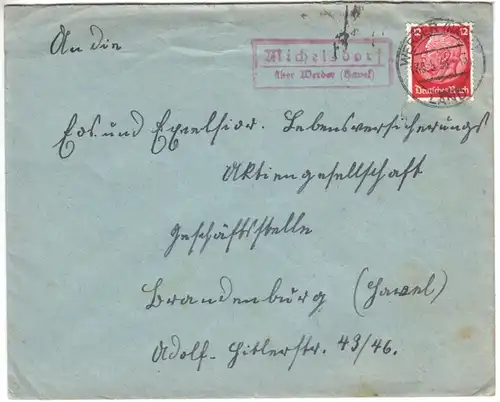 An die
Michelsdorf
über Werder (Havel)
12
Deutsches Reich
WERDER
LAND
Eos. und Excelsior. Lebensversicherungs
Aktiengesellschaft
Geschäftsstelle
Brandenburg (Havel)
Adolf-Hitlerstr. 43/46.